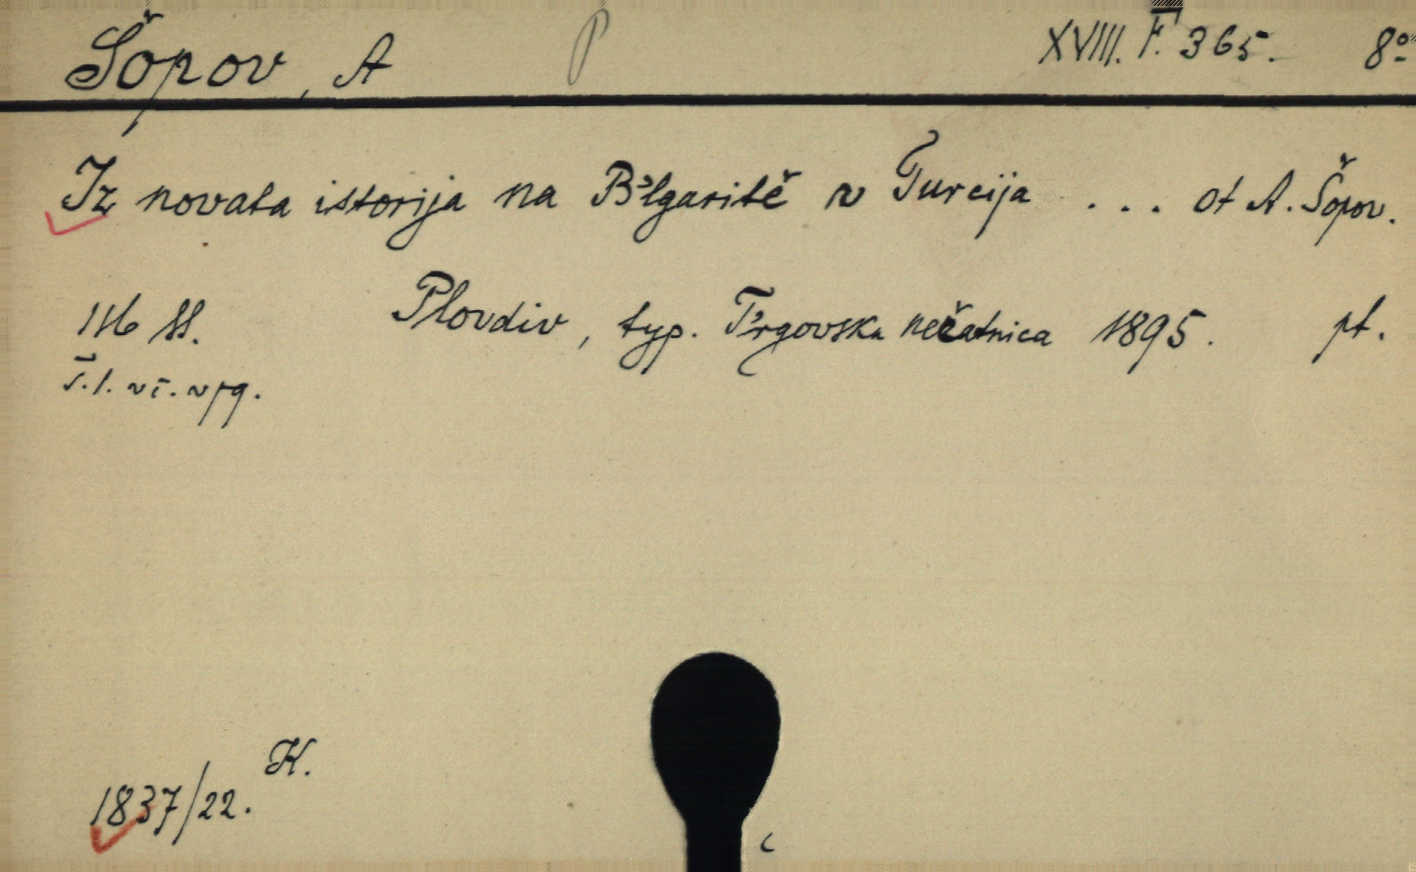 Šopov, A P XVIII. F. 365. 8°
Iz novata istorija na B'lgaritě v Turcija ... ot A. Šopov.
116 ss. Plovdiv, typ. T'rgovska nečatnica 1895. pt.
K.
1837/22.